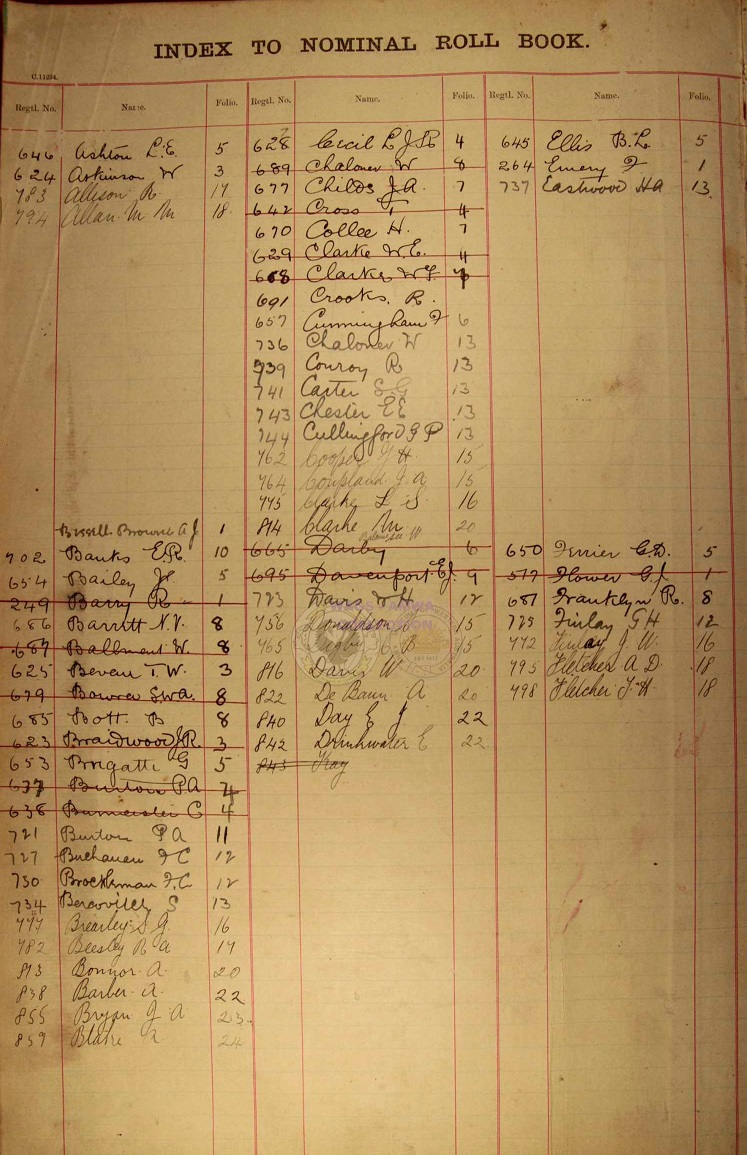 INDEX TO NOMINAL ROLL BOOK.
C.11294.
Regtl. No. Name. Folio.
646 Ashton L.E. 5
624 Atkinson W 3
783 Allison R. 17
794 Allan M M 18
Bissell Browne A J 1
702 Banks E.R. 10
654 Bailey J. 5
249 Barry R 1
686 Barritt N.V. 8
687 Ballment W. 8
625 Bevan T.W. 3
679 Bowra S.W.A. 8
685 Bott B 8
623 Braidwood J.R. 3
653 Brigatti G 5
637 Burton P A 4
638 Burmeister C 4
721 Burton P A 11
727 Buchanan F C 12
730 Brockleman F.C 12
734 Bercovitch S 13
777 Brearley S G. 16
782 Beesley R A 17
813 Bonnor A. 20
838 Barber A. 22
855 Bryan J A 23
859 Blake 24
Regtl. No. Name. Folio.
628 Cecil L J R 4
689 Chaloner W 8
677 Childs J.A. 7
642 Cross T 4
670 Collee H. 7
629 Clarke W.E. 4
668 Clarke W
691 Crooks. R.
657 Cunningham F 6
736 Chaloner W 13
739 Conroy R 13
741 Carter S G 13
743 Chester E E 13
744 Cullingford G P 13
762 Cooper H 15
764 Coupland J. A 15
775 Clarke L S. 16
814 Clarke M 20
665 Darby W 6
695 Davenport E J. 9
723 Davis H 12
756 Donaldson 15
765 15
816 Davis W 20
822 De Baun A 20
840 Day E J 22
842 Drinkwater E 22
843 Hay
Regtl. No. Name. Folio.
645 Ellis B.L. 5
264 Emery F 1
737 Eastwood H A 13
650 Ferrier C.D. 5
577 Flower G.J. 1
681 Franklyn R. 8
725 Finlay G H 12
772 Finlay J. W. 16
795 Fletcher A D. 18
798 Fletcher J. H 18